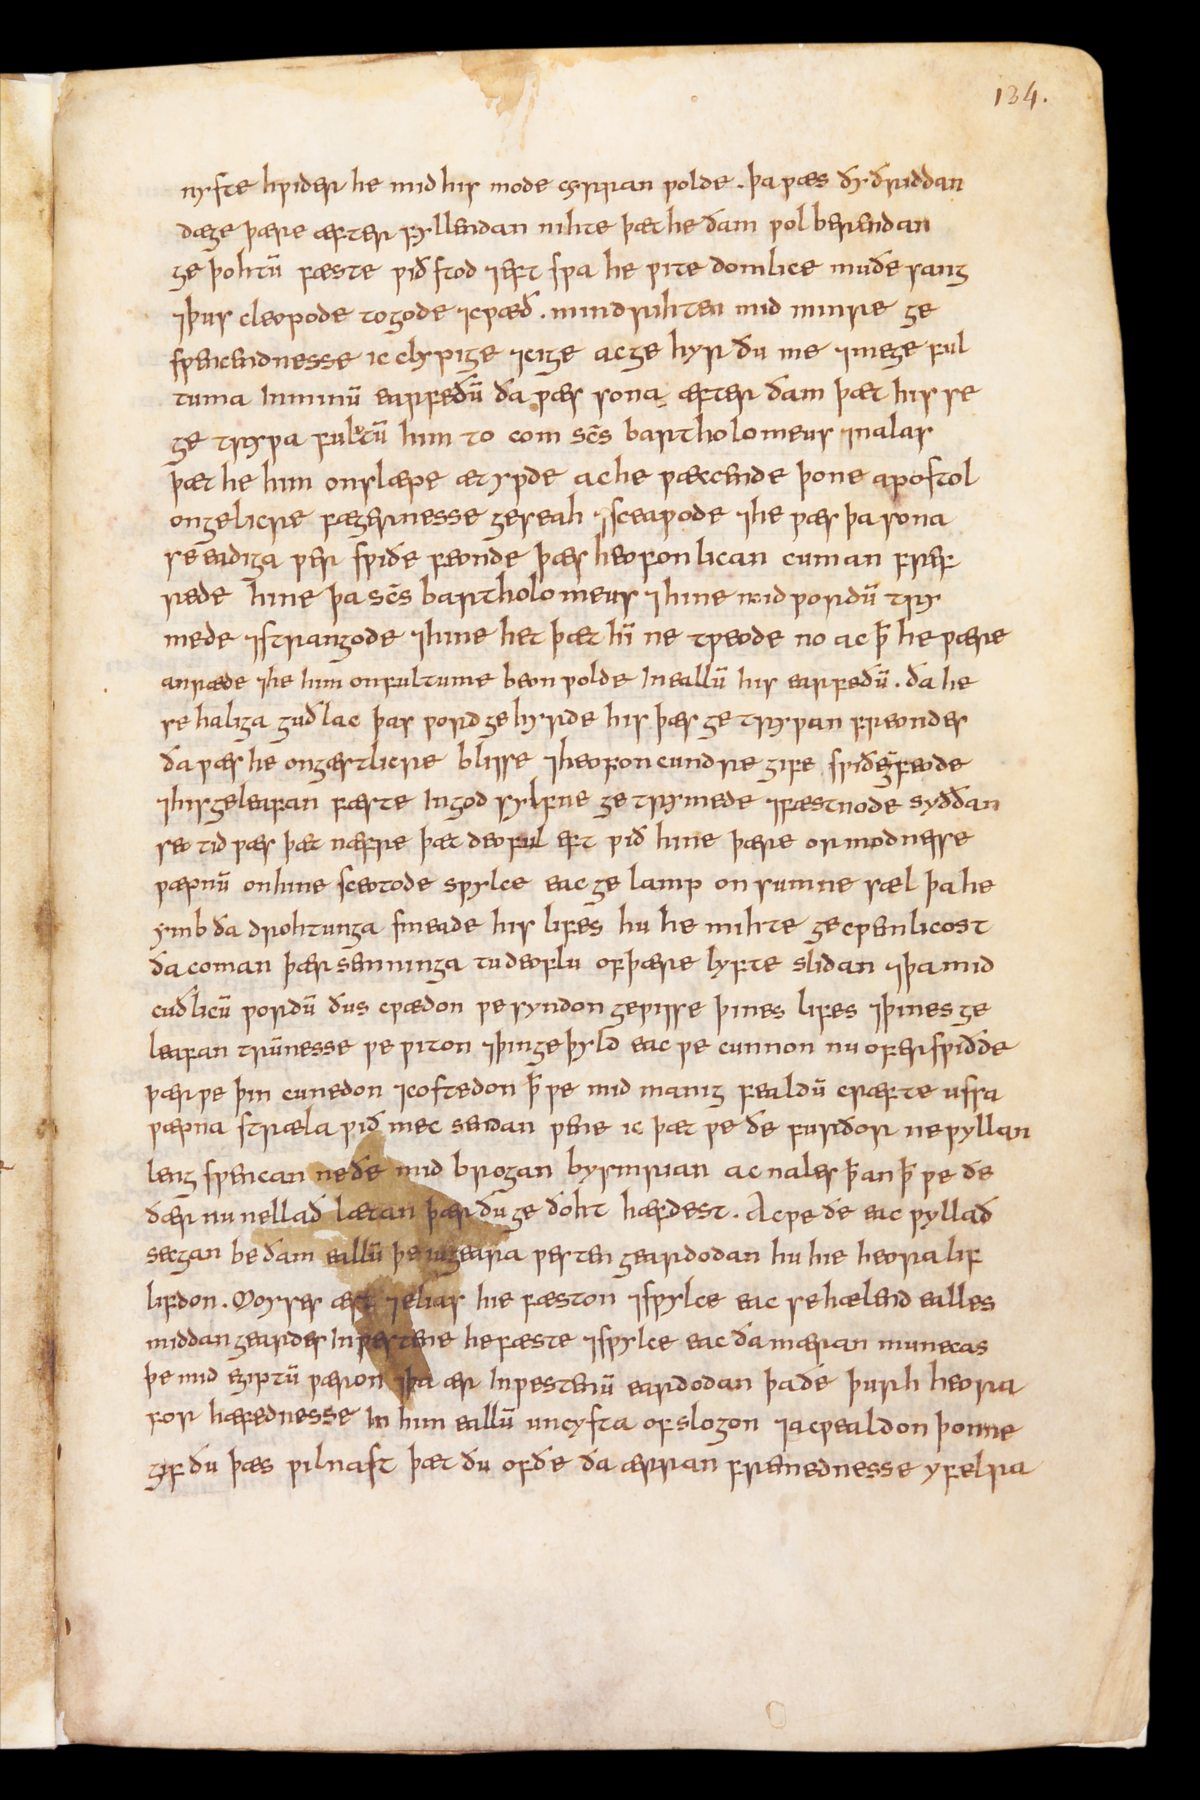 134.
nyste hƿider he mid his mode cyrran ƿolde. þa ƿæs ðy ðriddan
dæge þære æfter fyllendan nihte þæt he ðam ƿolberendan
geþohtū fæste ƿið stod ⁊ eft sƿa he ƿitedomlice muðe sang
⁊ þus cleopode to gode ⁊ cƿæð. min drihten mid minre ge
sƿencendnesse ic clypige ⁊ cige ac gehyr ðu me ⁊ mege ful
tuma in minū earfeðū ða ƿæs sona æfter ðam þæt his se
getryƿa fultū him to com scs̄ bartholomeus ⁊ nalas
þæt he him on slæpe ætyƿde ac he ƿæccende þone apostol
on gelicre fægernesse geseah ⁊ sceaƿode ⁊ he ƿæs þa sona
se eadiga ƿer sƿiðe feonde þæs heofonlican cuman fref
rede hine þa scs̄ bartholomeus ⁊ hine mid ƿordū try
mede ⁊ strangode ⁊ hine het þæt hī ne tƿeode no ac þ̄ he ƿære
anræde ⁊ he him on fultume beon ƿolde in eallū his earfeðū. ða he
se haliga guðlac þas ƿord gehyrde his þæs getryƿan freondes
ða ƿæs he on gæstlicre blisse ⁊ heofoncundre gife sƿiðe gefeode
⁊ his geleafan fæste in god sylfne getrymede ⁊ fæstnode syððan
seo tid ƿæs þæt næfre þæt deoful eft ƿið hine þære ormodnesse
ƿæpnū on hine sceotode sƿylce eac gelamp on sumne sæl þa he
ymb ða drohtunga smeade his lifes hu he mihte gecƿemlicost
ða coman þær semninga tu deoflu of þære lyfte slidan ⁊ þa mid
cuðlicū ƿordū ðus cƿædon ƿe syndon geƿisse þines lifes ⁊ þines ge
leafan trūnesse ƿe ƿiton ⁊ þin geþyld eac ƿe cunnon nu ofersƿiððe
þær ƿe þin cunedon ⁊ costedon þ̄ ƿe mid manig fealdū cræfte usra
ƿæpna stræla ƿið mec sendan ƿene ic þæt ƿe ðe furðor ne ƿyllan
leng sƿencan ne ðe mid brogan bysmrian ac nales þ̄ an þ̄ ƿe ðe
ðær nu nellað lætan þær ðu geðoht hæfdest. Ac ƿe ðe eac ƿyllað
secgan be ðam eallū þe iu geara ƿesten geardodan hu hie heora lif
lifdon. Moyses ærest ⁊ elias hie fæston ⁊ sƿylce eac se hælend ealles
middangeardes in ƿestene he fæste ⁊ sƿylce eac ða mæran munecas
þe mid egiptū ƿæron ⁊ þa ær in ƿestenū eardodan þa ðe þurh heora
forhæfednesse in him eallū uncysta ofslogon ⁊ acƿealdon þonne
gif ðu þæs ƿilnast þæt ðu of ðe ða ærran fremednesse yfelra